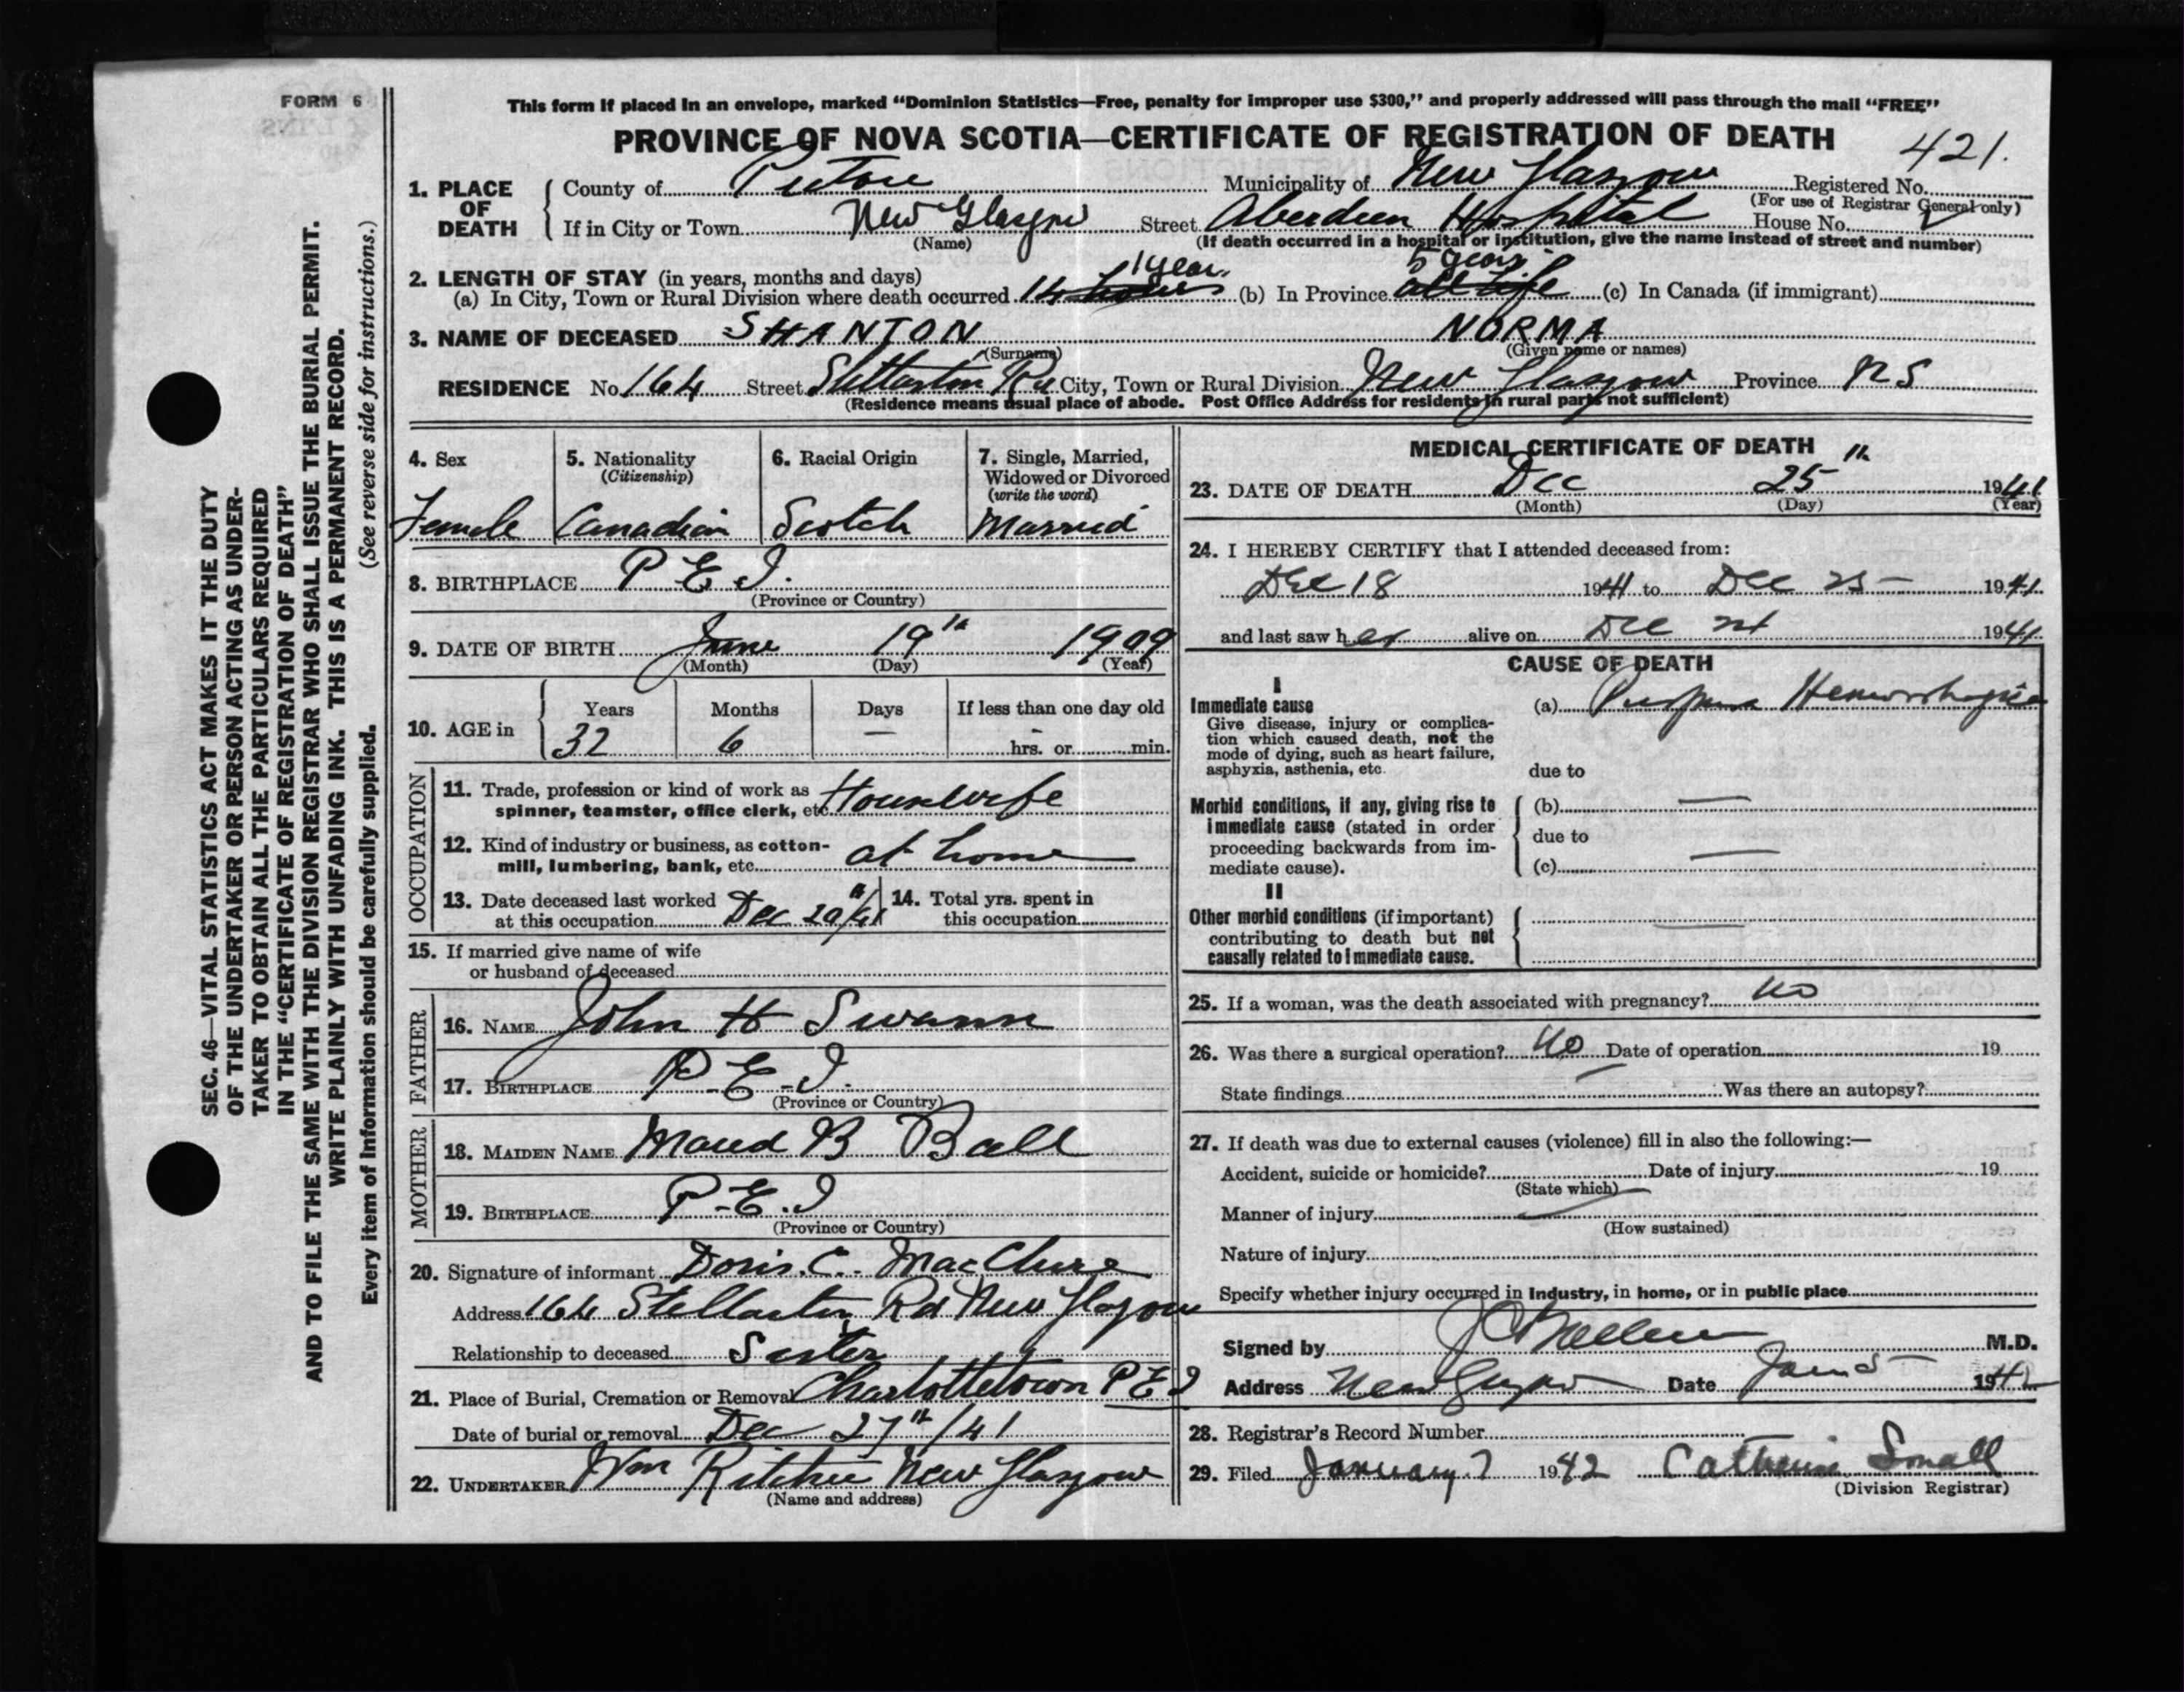 FORM 6
This form if placed in an envelope, marked “Dominion Statistics—Free, penalty for improper use $300,” and properly addressed will pass through the mail “FREE”
PROVINCE OF NOVA SCOTIA—CERTIFICATE OF REGISTRATION OF DEATH
421.
1. PLACE OF DEATH
County of Pictou Municipality of New Glasgow Registered No.
(For use of Registrar General only)
If in City or Town New Glasgow Street Aberdeen Hospital House No.
(Name) (If death occurred in a hospital or institution, give the name instead of street and number)
2. LENGTH OF STAY (in years, months and days)
1 year 5 years
(a) In City, Town or Rural Division where death occurred 14 hours (b) In Province all life (c) In Canada (if immigrant)
3. NAME OF DECEASED SHANTON NORMA
(Surname) (Given name or names)
RESIDENCE No. 164 Street Stellarton Rd City, Town or Rural Division New Glasgow Province NS
(Residence means usual place of abode. Post Office Address for residents in rural parts not sufficient)
4. Sex
Female
5. Nationality
(Citizenship)
Canadian
6. Racial Origin
Scotch
7. Single, Married, Widowed or Divorced
(write the word)
Married
8. BIRTHPLACE P.E.I.
(Province or Country)
9. DATE OF BIRTH June 19th 1909
(Month) (Day) (Year)
10. AGE in
Years Months Days If less than one day old
32 6 — hrs. or min.
OCCUPATION
11. Trade, profession or kind of work as
spinner, teamster, office clerk, etc. Housewife
12. Kind of industry or business, as cotton-
mill, lumbering, bank, etc. at home
13. Date deceased last worked
at this occupation Dec
14. Total yrs. spent in
this occupation
15. If married give name of wife
or husband of deceased
FATHER
16. NAME John H Swann
17. BIRTHPLACE P.E.I.
(Province or Country)
MOTHER
18. MAIDEN NAME Maud B Ball
19. BIRTHPLACE P.E.I
(Province or Country)
20. Signature of informant Doris. C. MacClure
Address 164 Stellarton Rd New Glasgow
Relationship to deceased Sister
21. Place of Burial, Cremation or Removal Charlottetown P E I
Date of burial or removal Dec 27th/41
22. UNDERTAKER Wm Ritchie New Glasgow
(Name and address)
MEDICAL CERTIFICATE OF DEATH
23. DATE OF DEATH Dec 25th 1941
(Month) (Day) (Year)
24. I HEREBY CERTIFY that I attended deceased from:
Dec 18 1941 to Dec 25 1941
and last saw her alive on Dec 24 1941
CAUSE OF DEATH
I
Immediate cause
Give disease, injury or complica-
tion which caused death, not the
mode of dying, such as heart failure,
asphyxia, asthenia, etc.
(a) Purpura Hemorrhagica
due to
Morbid conditions, if any, giving rise to
immediate cause (stated in order
proceeding backwards from im-
mediate cause).
(b) —
due to
(c) —
II
Other morbid conditions (if important)
contributing to death but not
causally related to immediate cause.
25. If a woman, was the death associated with pregnancy? no
26. Was there a surgical operation? No Date of operation 19
State findings Was there an autopsy?
27. If death was due to external causes (violence) fill in also the following:—
Accident, suicide or homicide? Date of injury 19
(State which)
Manner of injury
(How sustained)
Nature of injury
Specify whether injury occurred in industry, in home, or in public place
Signed by M.D.
Address New Glasgow Date Jan 5 1942
28. Registrar's Record Number
29. Filed January 7 1942 Catherine Small
(Division Registrar)
SEC. 46—VITAL STATISTICS ACT MAKES IT THE DUTY
OF THE UNDERTAKER OR PERSON ACTING AS UNDER-
TAKER TO OBTAIN ALL THE PARTICULARS REQUIRED
IN THE “CERTIFICATE OF REGISTRATION OF DEATH”
AND TO FILE THE SAME WITH THE DIVISION REGISTRAR WHO SHALL ISSUE THE BURIAL PERMIT.
WRITE PLAINLY WITH UNFADING INK. THIS IS A PERMANENT RECORD.
Every item of information should be carefully supplied. (See reverse side for instructions.)